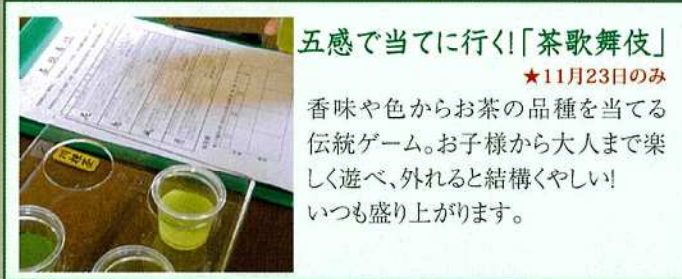 五感で当てに行く!「茶歌舞伎」
★11月23日のみ
香味や色からお茶の品種を当てる
伝統ゲーム。お子様から大人まで楽
しく遊べ、外れると結構くやしい!
いつも盛り上がります。